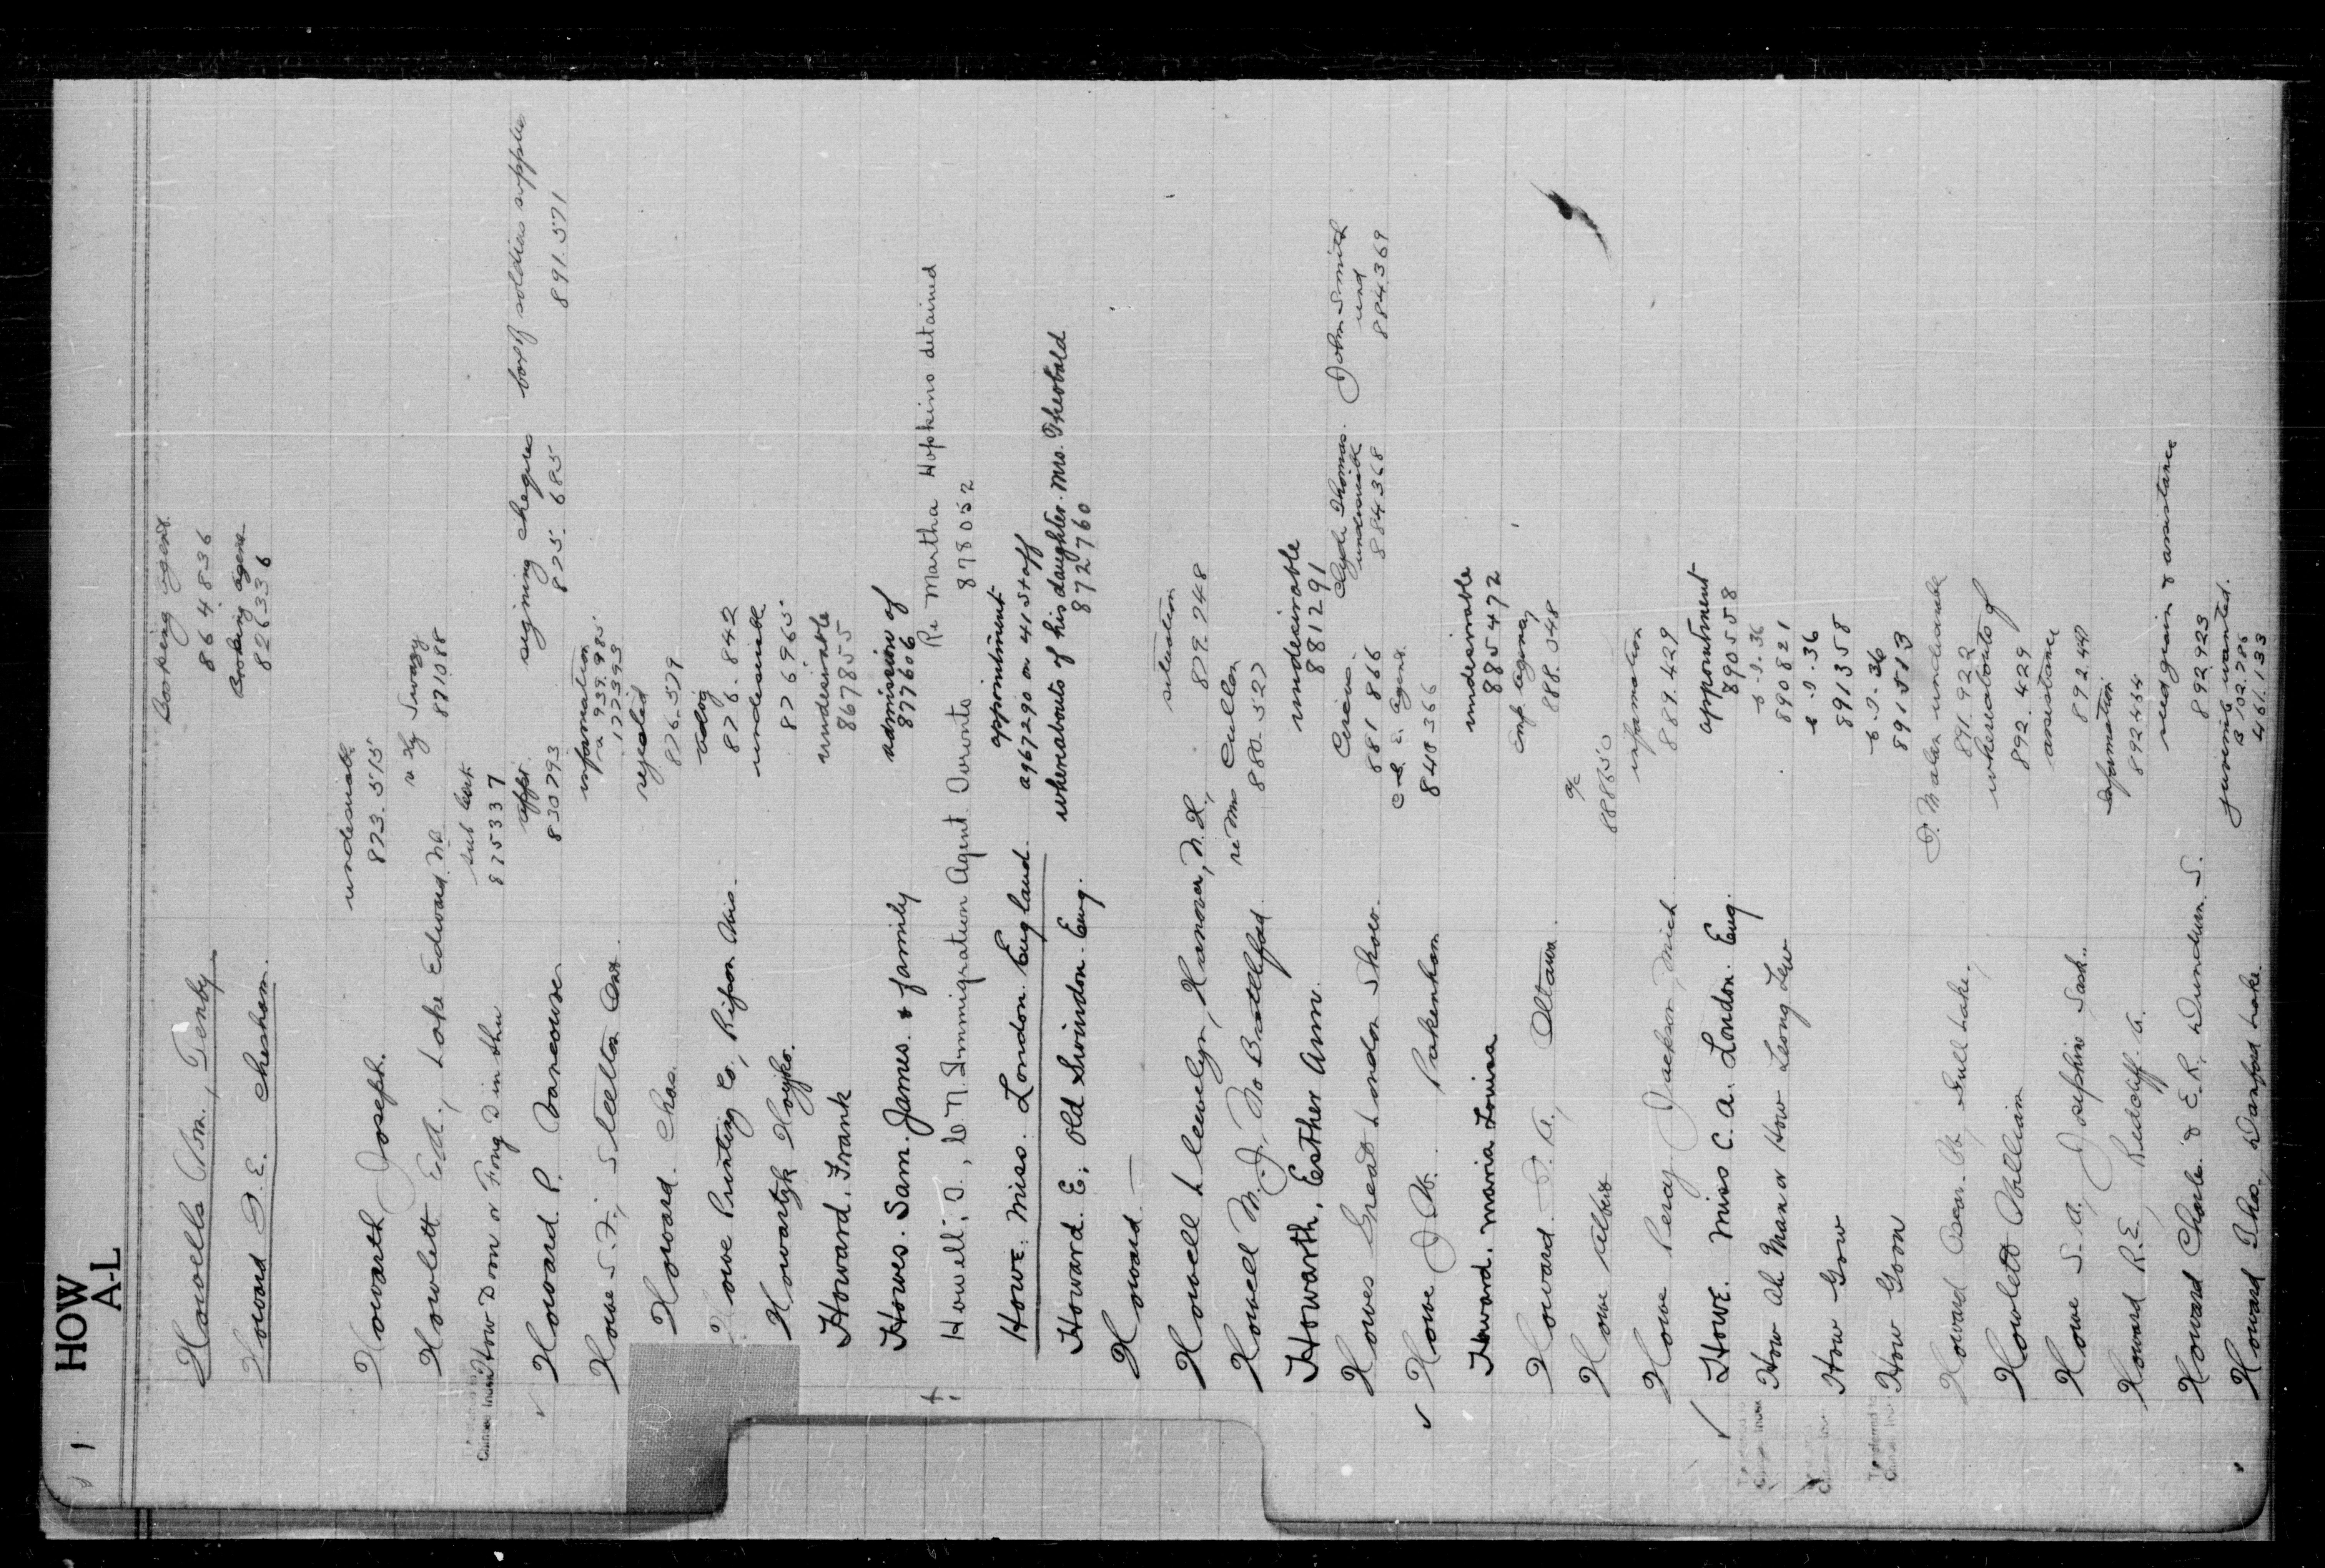 HOW
A-L
1
Howells Wm., Tenby
Booking agent
864836
Howard D. E. Chesham.
Booking agent
826336
Howarth, Joseph.
undesirable
873.515
Howlett Ed., Lake Edward. NB
871088
How Dom or Fong Din thu
875337
Howard P. Vancouver
appt.
830793
signing cheques
825.685
box of soldiers supplies
891.571
Howe S. F., Ont.
information
a 939.985
122393
Howard. Chas.
rejected
876.579
Howe Printing Co., Ripon Wis.
876.842
Howartyk Hoyko.
undesirable
876965
Howard. Frank
undesirable
867855
Howes. Sam. James. & family
admission of
877606
Howell, T., C.N. Immigration Agent Toronto
Re Martha Hopkins detained
878052
Howe. Miss. London England.
appointment
a967290 on 41 Staff
Howard. E. Old Swindon. Eng.
whereabouts of his daughter. Mrs. Theobald
872760
Howard —
Howell Llewelyn, Hanover, N.H.,
situation
879.748
Howell M. J., No Battleford
re Mrs Cullen
880.527
Howarth, Esther Ann.
undesirable
881291
Howes Great London Show.
Circus.
881866
Clyde Thomas.
undesirable
884368
John Smith
und
884369
Howe J. W. Pakenham
C. E. Agent.
840366
Howard. Maria Louisa
undesirable
885472
Howard. Ottawa.
Emp. agency
888.048
Howe Albert
a/c
888650
Howe Percy Jackson, Mich.
information
889.429
Howe. Miss C. A. London. Eng.
appointment
890558
How Ah Man or How Leong Lew
c.i.36
890821
How Gow
c.i.36
891358
How Goon
c.i.36
891513
Howard Oscar. W., Gull Lake.
undesirable
891.922
Howlett William
whereabouts of
892.429
Howe S. A., Josephine Sask.
assistance
892.447
Howard R. E., Redcliff A.
Information
892454
Howard Charles & E. R., Dundurn. S.
seed grain & assistance
892923
Howard Thos., Danford Lake.
juvenile wanted.
B 102.786
461.133